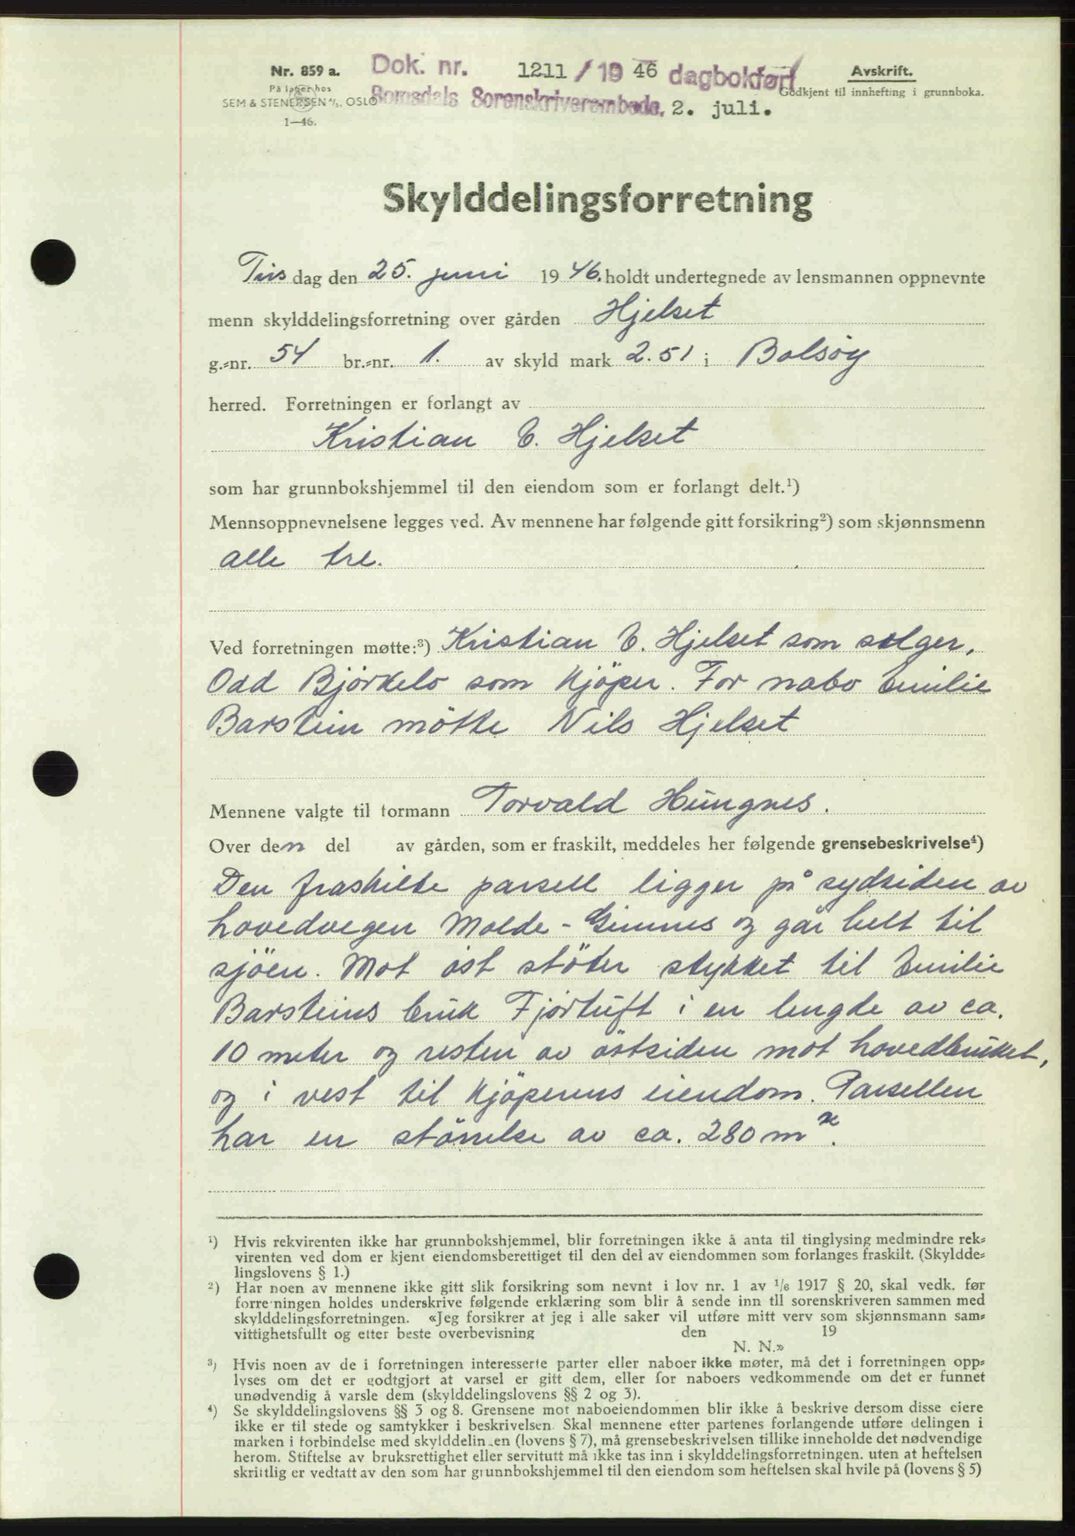 Nr. 859 a.
På lager hos
SEM & STENERSEN A/S, OSLO
1—46.
Dok. nr. 1211 / 19 46 dagbokført
Romsdals Sorenskriverembede, 2. juli.
Avskrift.
Godkjent til innhefting i grunnboka.
Skylddelingsforretning
Tirs dag den 25. juni 19 46. holdt undertegnede av lensmannen oppnevnte
menn skylddelingsforretning over gården Hjelset
g.=nr. 54 br.=nr. 1. av skyld mark 2.51 i Bolsøy
herred. Forretningen er forlangt av
Kristian E. Hjelset
som har grunnbokshjemmel til den eiendom som er forlangt delt.¹)
Mennsoppnevnelsene legges ved. Av mennene har følgende gitt forsikring²) som skjønnsmenn
alle tre.
Ved forretningen møtte:³) Kristian E. Hjelset som selger,
Odd Bjørkelo som kjöper. For nabo Emilie
Barstein mötte Nils Hjelset
Mennene valgte til formann Torvald Hungnes.
Over den del av gården, som er fraskilt, meddeles her følgende grensebeskrivelse⁴)
Den fraskilte parsell ligger på sydsiden av
hovedvegen Molde - Gimnes og går helt til
sjöen. Mot öst stöter stykket til Emilie
Barsteins bruk Fjörtuft i en lengde av ca.
10 meter og resten av östsiden mot hovedbruket,
og i vest til kjöperens eiendom. Parsellen
har en störrelse av ca. 280 m².
¹) Hvis rekvirenten ikke har grunnbokshjemmel, blir forretningen ikke å anta til tinglysing medmindre rek=
virenten ved dom er kjent eiendomsberettiget til den del av eiendommen som forlanges fraskilt. (Skyldde=
lingslovens § 1.)
²) Har noen av mennene ikke gitt slik forsikring som nevnt i lov nr. 1 av 1/6 1917 § 20, skal vedk. før
forretningen holdes underskrive følgende erklæring som blir å sende inn til sorenskriveren sammen med
skylddelingsforretningen. «Jeg forsikrer at jeg i alle saker vil utføre mitt verv som skjønnsmann sam=
vittighetsfullt og etter beste overbevisning den 19
N. N.»
³) Hvis noen av de i forretningen interesserte parter eller naboer ikke møter, må det i forretningen opp=
lyses om det er godtgjort at varsel er gitt dem, eller for naboers vedkommende om det er funnet
unødvendig å varsle dem (skylddelingslovens §§ 2 og 3).
⁴) Se skylddelingslovens §§ 3 og 8. Grensene mot naboeiendommen blir ikke å beskrive dersom disse eiere
ikke er til stede og samtykker i beskrivelsen. Skal mennene etter partenes forlangende utføre delingen i
marken i forbindelse med skylddelingen (lovens § 7), må grensebeskrivelsen tillike inneholde det nødvendige
herom. Stiftelse av bruksrettighet eller servitutt må ikke tas inn i skylddelingsforretningen. uten at heftelsen
skriftlig er vedtatt av den som har grunnbokshjemmel til den eiendom som heftelsen skal hvile på (lovens § 5)